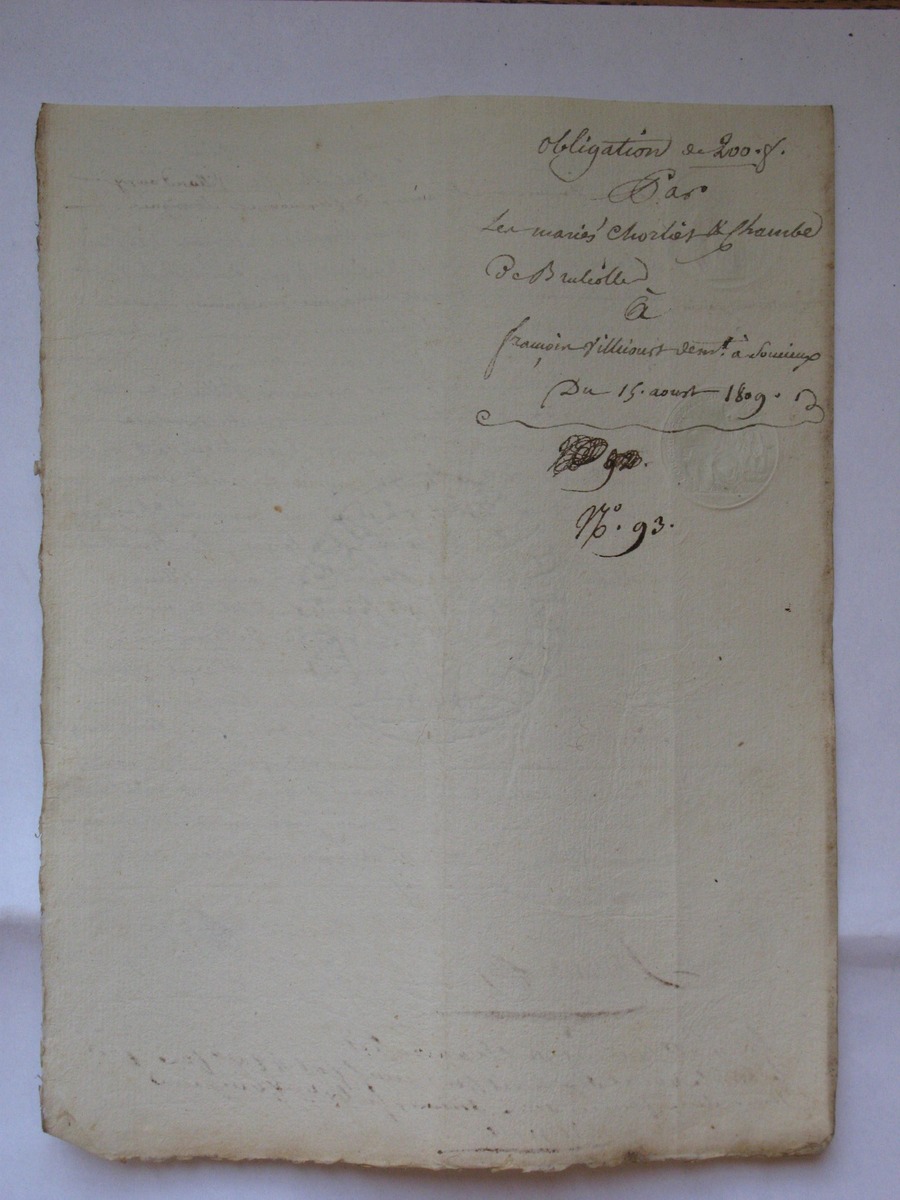 obligation de 200 f.
Par
Les mariés Chortier & Chambe
De Brulliolle
à
françois Villecourt dem.t à Soucieux
Du 15. aoust 1809.
N.o 93.